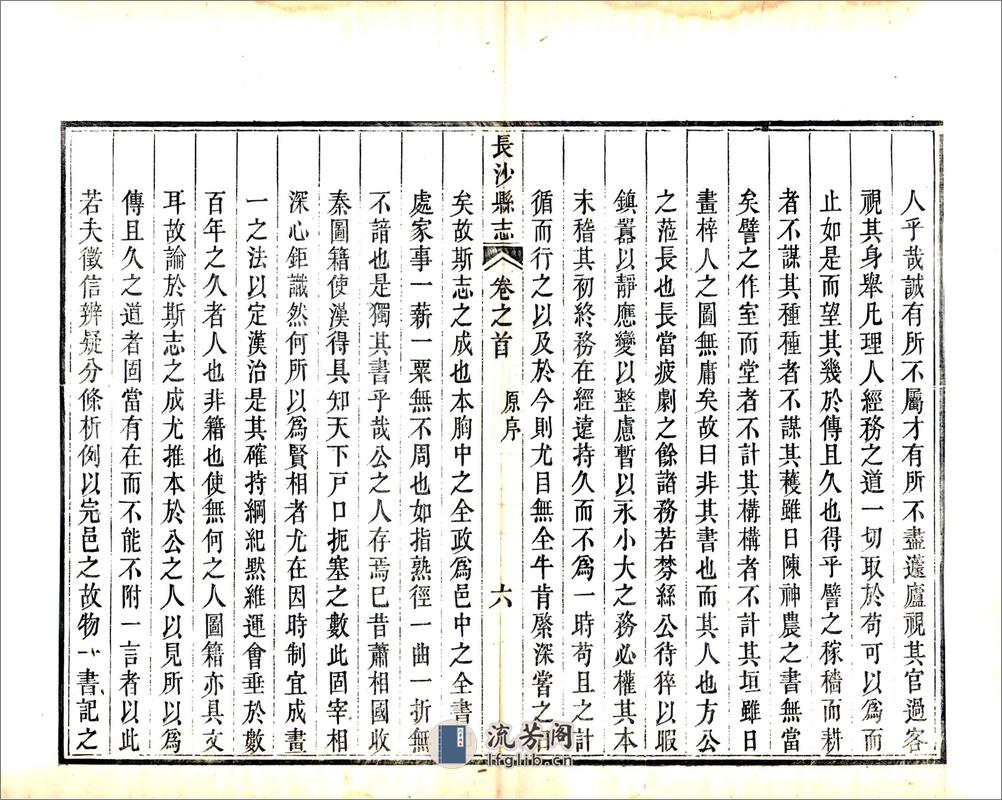 人乎哉誠有所不屬才有所不盡蘧廬視其官過客
視其身舉凡理人經務之道一切取於苟可以為而
止如是而望其幾於傳且久也得乎譬之稼穡而耕
者不謀其種種者不謀其穫雖日陳神農之書無當
矣譬之作室而堂者不計其構構者不計其垣雖日
畫梓人之圖無庸矣故曰非其書也而其人也方公
之蒞長也長當疲劇之餘諸務若棼絲公待猝以暇
鎮囂以靜應變以整慮暫以永小大之務必權其本
末稽其初終務在經遠持久而不為一時苟且之計
循而行之以及於今則尤目無全牛肯綮深嘗之
長沙縣志 卷之首 原序 六
矣故斯志之成也本胸中之全政為邑中之全書
處家事一薪一粟無不周也如指熟徑一曲一折無
不諳也是獨其書乎哉公之人存焉已昔蕭相國收
秦圖籍使漢得具知天下戸口扼塞之數此固宰相
深心鉅識然何所以為賢相者尤在因時制宜成畫
一之法以定漢治是其確持綱紀默維運會垂於數
百年之久者人也非籍也使無何之人圖籍亦具文
耳故論於斯志之成尤推本於公之人以見所以為
傳且久之道者固當有在而不能不附一言者以此
若夫徵信辨疑分條析例以完邑之故物一書記之
流芳阁
lfglib.cn